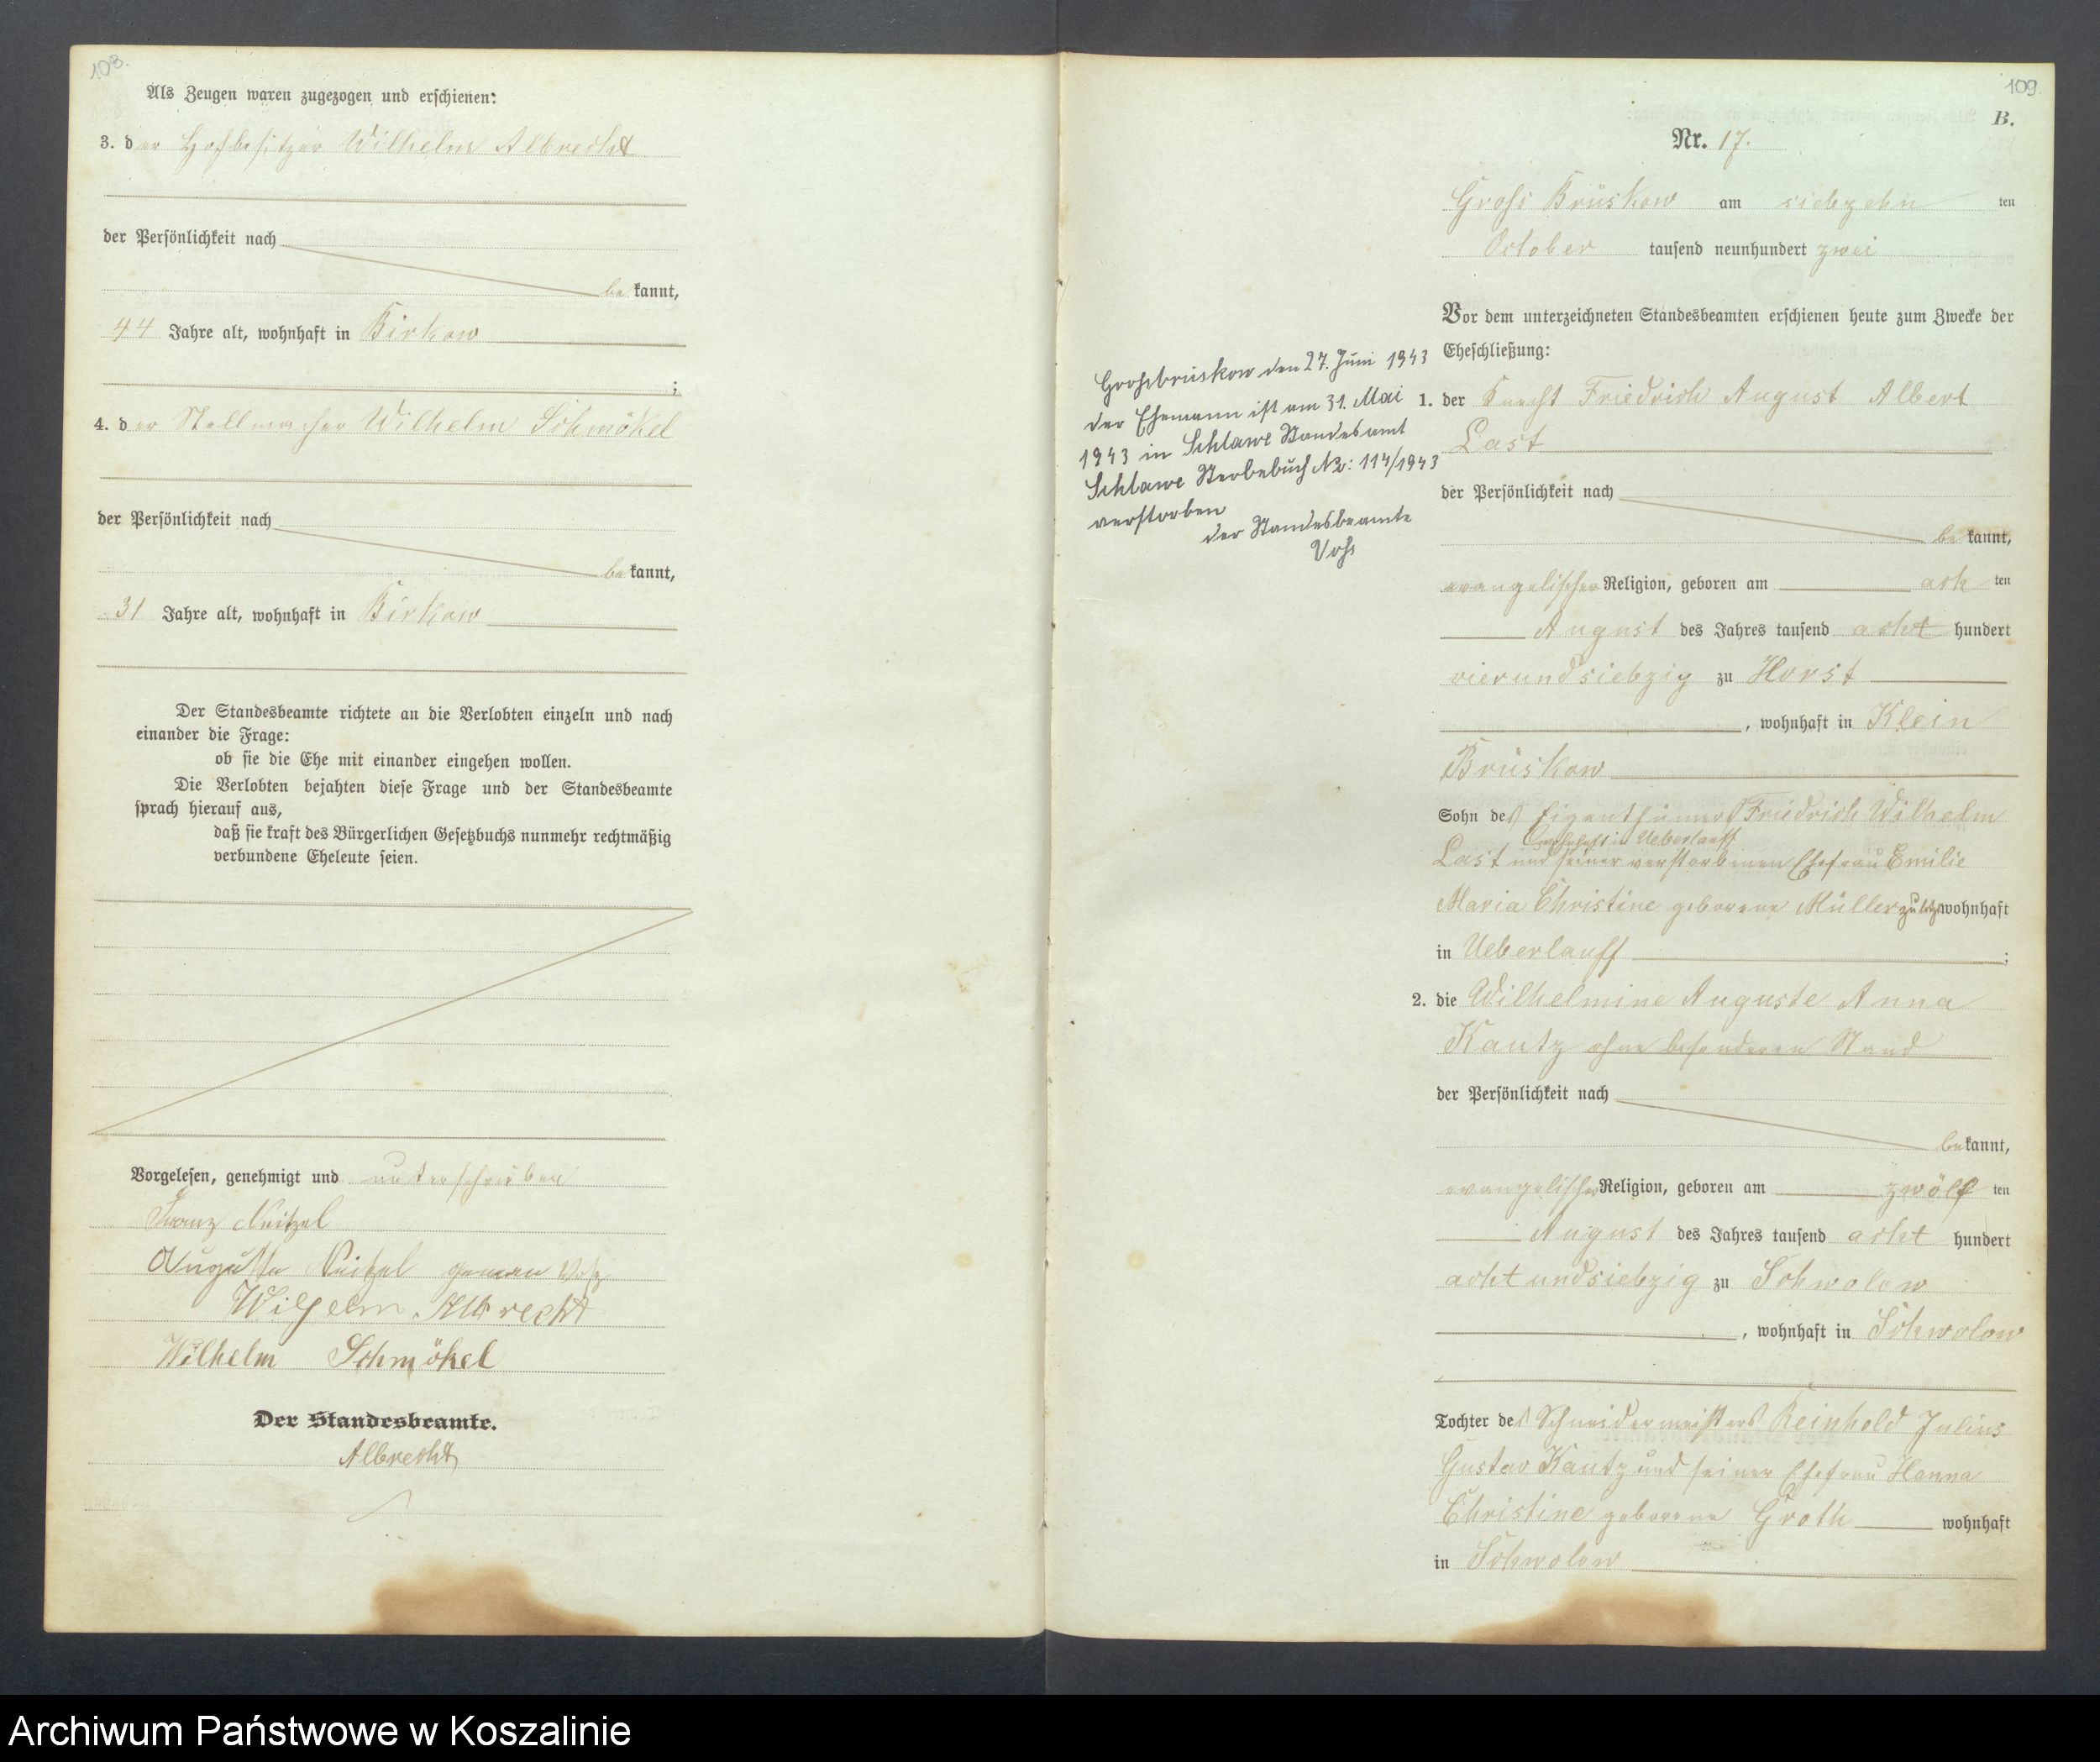 108.
Als Zeugen waren zugezogen und erschienen:
3. der Hofbesitzer Wilhelm Albrecht
der Persönlichkeit nach
bekannt,
44 Jahre alt, wohnhaft in Birkow
;
4. der Stellmacher Wilhelm Schmökel
der Persönlichkeit nach
bekannt,
31 Jahre alt, wohnhaft in Birkow
Der Standesbeamte richtete an die Verlobten einzeln und nach
einander die Frage:
ob sie die Ehe mit einander eingehen wollen.
Die Verlobten bejahten diese Frage und der Standesbeamte
sprach hierauf aus,
daß sie kraft des Bürgerlichen Gesetzbuchs nunmehr rechtmäßig
verbundene Eheleute seien.
Vorgelesen, genehmigt und unterschrieben
Franz Neitzel
Auguste Neitzel geborene
Wilhelm Albrecht
Wilhelm Schmökel
Der Standesbeamte.
Albrecht
109.
B.
Nr. 17.
Gross Brüskow am siebzehn ten
October tausend neunhundert zwei
Vor dem unterzeichneten Standesbeamten erschienen heute zum Zwecke der
Eheschließung:
1. der Knecht Friedrich August Albert
Last
der Persönlichkeit nach
bekannt,
evangelischer Religion, geboren am ach ten
August des Jahres tausend acht hundert
vierundsiebzig zu Horst
, wohnhaft in Klein
Brüskow
Sohn des Eigenthümers Friedrich Wilhelm
wohnhaft in Ueberlauff
Last und seiner verstorbenen Ehefrau Emilie
Maria Christine geborene Müller zuletzt wohnhaft
in Ueberlauff ;
2. die Wilhelmine Auguste Anna
Kautz ohne besonderen Stand
der Persönlichkeit nach
bekannt,
evangelischer Religion, geboren am zwölf ten
August des Jahres tausend acht hundert
achtundsiebzig zu Schwolow
, wohnhaft in Schwolow
Tochter des Schneidermeisters Reinhold Julius
Gustav Kautz und seiner Ehefrau Hanna
Christine geborene Groth wohnhaft
in Schwolow
Grossbrüskow den 27. Juni 1943
der Ehemann ist am 31. Mai
1943 in Schlawe Standesamt
Schlawe Sterbebuch No: 114/1943
verstorben
der Standesbeamte
Voss
Archiwum Państwowe w Koszalinie